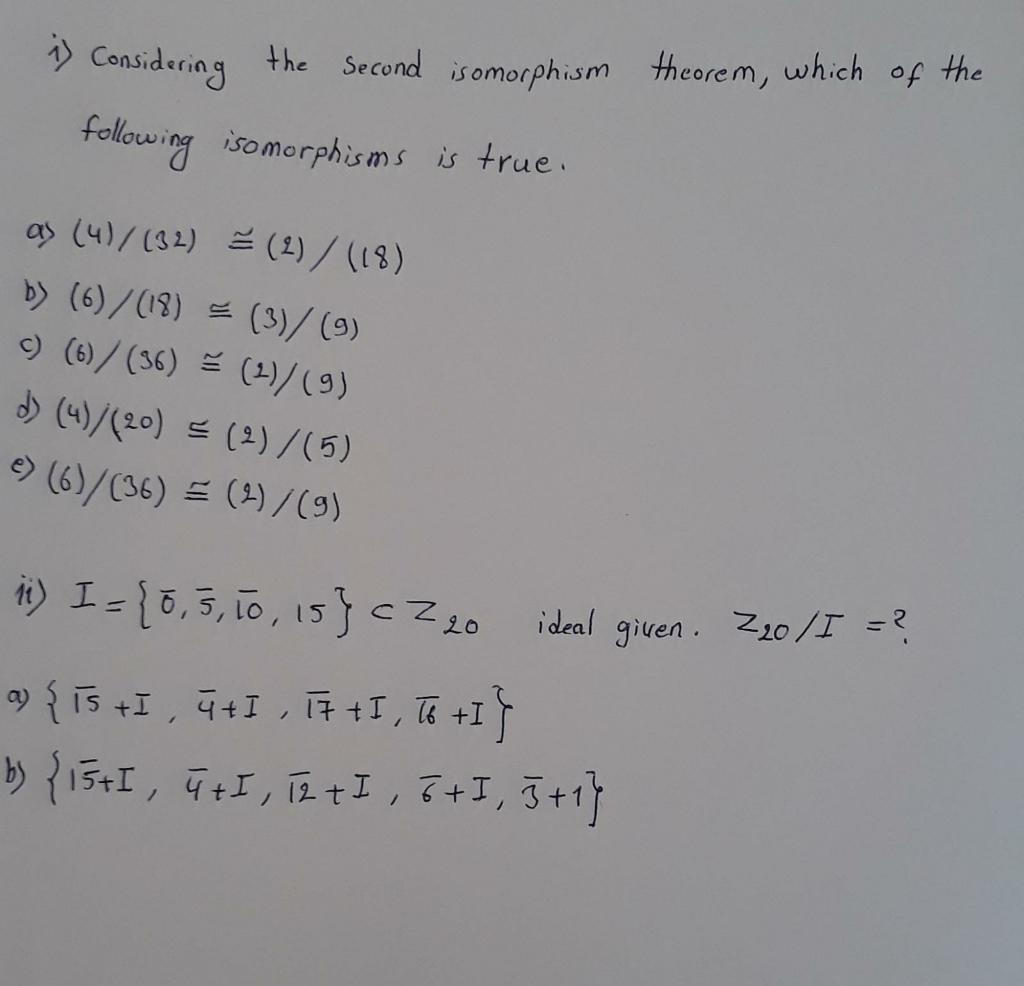 i) Considering the second isomorphism theorem, which of the
following isomorphisms is true.
a) (4)/(32) ≅ (2)/(18)
b) (6)/(18) ≅ (3)/(9)
c) (6)/(36) ≅ (2)/(9)
d) (4)/(20) ≅ (2)/(5)
e) (6)/(36) ≅ (2)/(9)
ii) I = {0̄, 5̄, 1̄0̄, 15} ⊂ Z₂₀ ideal given. Z₂₀/I = ?
a) {1̄5̄ + I, 4̄ + I, 1̄7̄ + I, 1̄6̄ + I}
b) {15̄ + I, 4̄ + I, 1̄2̄ + I, 6̄ + I, 3̄ + 1}